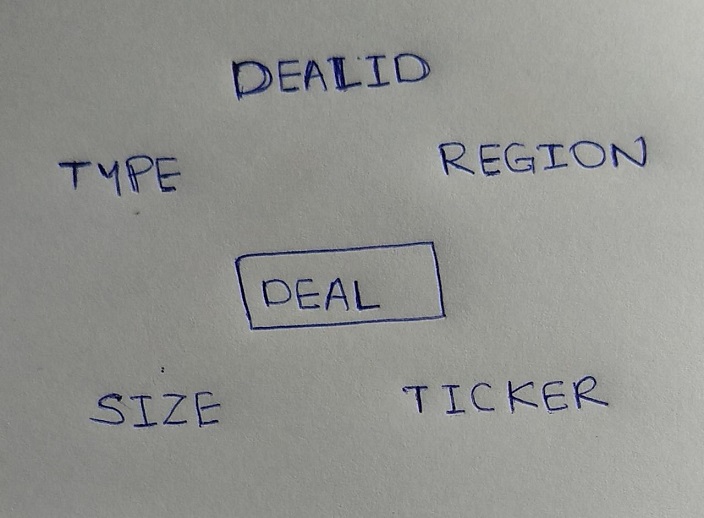 DEALID
TYPE REGION
DEAL
SIZE TICKER